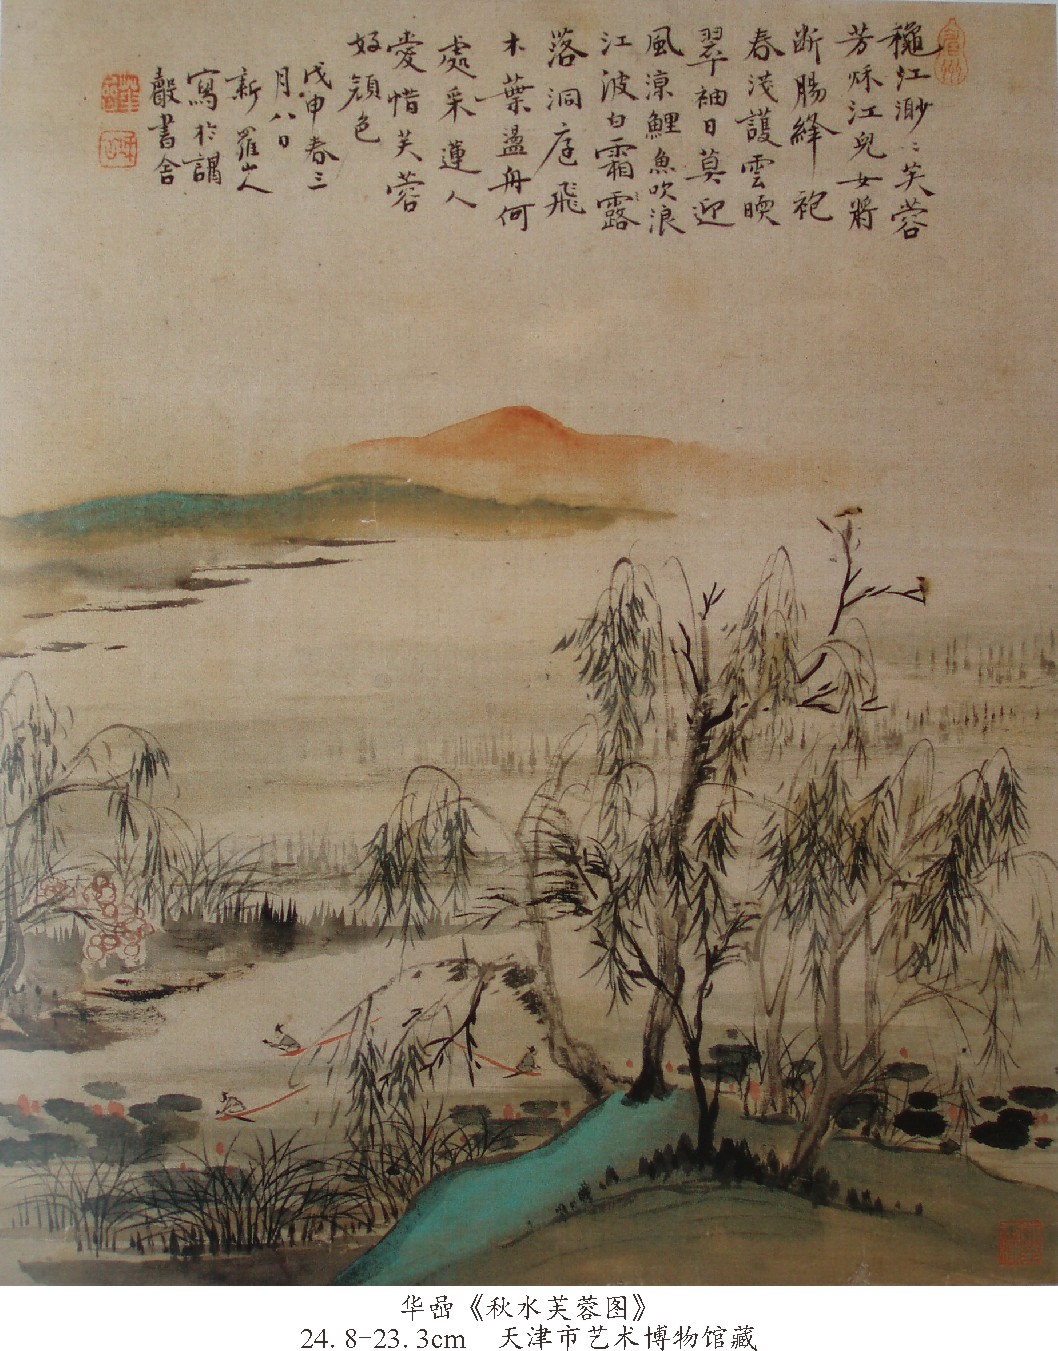 龝江渺〻芙蓉
芳秌江兒女將
断腸絳袍
春淺護雲暎
翠袖日莫迎
風凉鯉魚吹浪
江波白霜露
落洞庭飛
木葉盪舟何
處采蓮人
愛惜芙蓉
好顔色
戊申春三
月八日
新羅山人
寫於謂
鷇書舍
华喦《秋水芙蓉图》
24.8-23.3cm 天津市艺术博物馆藏